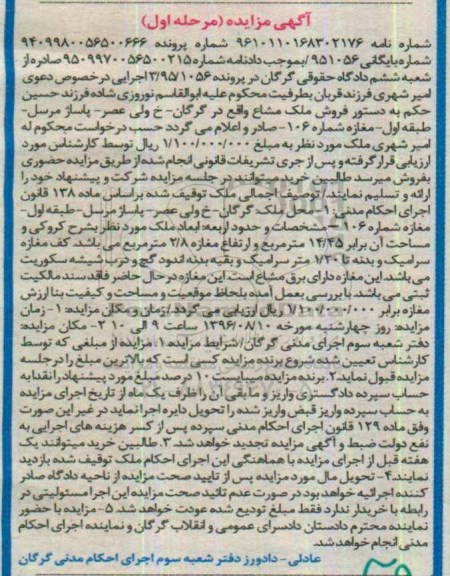 آگهی مزایده (مرحله اول)
شماره نامه ۹۶۱۰۱۱۰۱۶۸۳۰۲۱۷۶ شماره پرونده ۹۴۰۹۹۸۰۰۵۶۵۰۰۶۶۶
شماره بایگانی ۹۵۱۰۵۶/ بموجب دادنامه شماره ۹۵۰۹۹۷۰۰۵۶۵۰۰۲۱۵ صادره از
شعبه ششم دادگاه حقوقی گرگان در پرونده ۳/۹۵/۱۰۵۶ اجرایی در خصوص دعوی
امیر شهری فرزند قربان بطرفیت محکوم علیه ابوالقاسم نوروزی شاده فرزند حسین
حکم به دستور فروش ملک مشاع واقع در گرگان- خ ولی عصر- پاساژ مرسل-
طبقه اول- مغازه شماره ۱۰۶- صادر و اعلام می گردد حسب درخواست محکوم له
امیر شهری ملک مورد نظر به مبلغ ۱/۱۰۰/۰۰۰/۰۰۰ ریال توسط کارشناس مورد
ارزیابی قرار گرفته و پس از جری تشریفات قانونی انجام شده از طریق مزایده حضوری
بفروش میرسد طالبین خرید میتوانند در جلسه مزایده شرکت و پیشنهاد خود را
ارائه و تسلیم نمایند/ توصیف اجمالی ملک توقیف شده بر اساس ماده ۱۳۸ قانون
اجرای احکام مدنی: ۱- محل ملک گرگان- خ ولی عصر- پاساژ مرسل- طبقه اول-
مغازه شماره ۱۰۶ ۲- مشخصات و حدود اربعه: ابعاد ملک مورد نظر بشرح کروکی و
مساحت آن برابر ۱۴/۴۵ مترمربع و ارتفاع مغازه ۲/۸ مترمربع می باشد. کف مغازه
سرامیک و بدنه تا ۱/۲۰ متر سرامیک و بقیه بدنه اندود گچ و درب شیشه سکوریت
می باشد. این مغازه دارای برق مشاع است. این مغازه در حال حاضر فاقد سند مالکیت
ثبتی می باشد. با بررسی بعمل آمده بلحاظ موقعیت و مساحت و کیفیت بنا ارزش
مغازه برابر ۱/۱۰۰/۰۰۰/۰۰۰ ریال ارزیابی می گردد./ زمان و مکان مزایده: ۱- زمان
مزایده: روز چهارشنبه مورخه ۱۳۹۶/۰۸/۱۰ ساعت ۹ الی ۱۰ ۲- مکان مزایده:
دفتر شعبه سوم اجرای مدنی گرگان/ شرایط مزایده: ۱. مزایده از مبلغی که توسط
کارشناس تعیین شده شروع برنده مزایده کسی است که بالاترین مبلغ را در جلسه
مزایده قبول نماید. ۲. برنده مزایده میبایست ۱۰ درصد مبلغ مورد پیشنهاد را نقدا به
حساب سپرده دادگستری واریز و مابقی آن را ظرف یک ماه از تاریخ اجرای مزایده
به حساب سپرده واریز قبض واریز شده را تحویل دایره اجرا نماید در غیر این صورت
وفق ماده ۱۲۹ قانون اجرای احکام مدنی سپرده پس از کسر هزینه های اجرایی به
نفع دولت ضبط و آگهی مزایده تجدید خواهد شد. ۳. طالبین خرید میتوانند یک
هفته قبل از اجرای مزایده با هماهنگی این اجرای احکام ملک توقیف شده بازدید
نمایند. ۴- تحویل مال مورد مزایده پس از تایید صحت مزایده از ناحیه دادگاه صادر
کننده اجرائیه خواهد بود در صورت عدم تائید صحت مزایده این اجرا مسئولیتی در
رابطه با خریدار ندارد فقط مبلغ تودیع شده عودت خواهد شد. ۵- مزایده با حضور
نماینده محترم دادستان دادسرای عمومی و انقلاب گرگان و نماینده اجرای احکام
مدنی انجام خواهد شد.
عادلی- دادورز دفتر شعبه سوم اجرای احکام مدنی گرگان